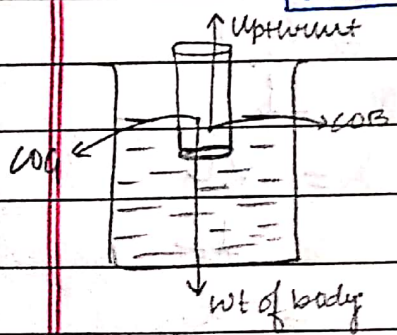 Upthrust
COB
COG
Wt of body